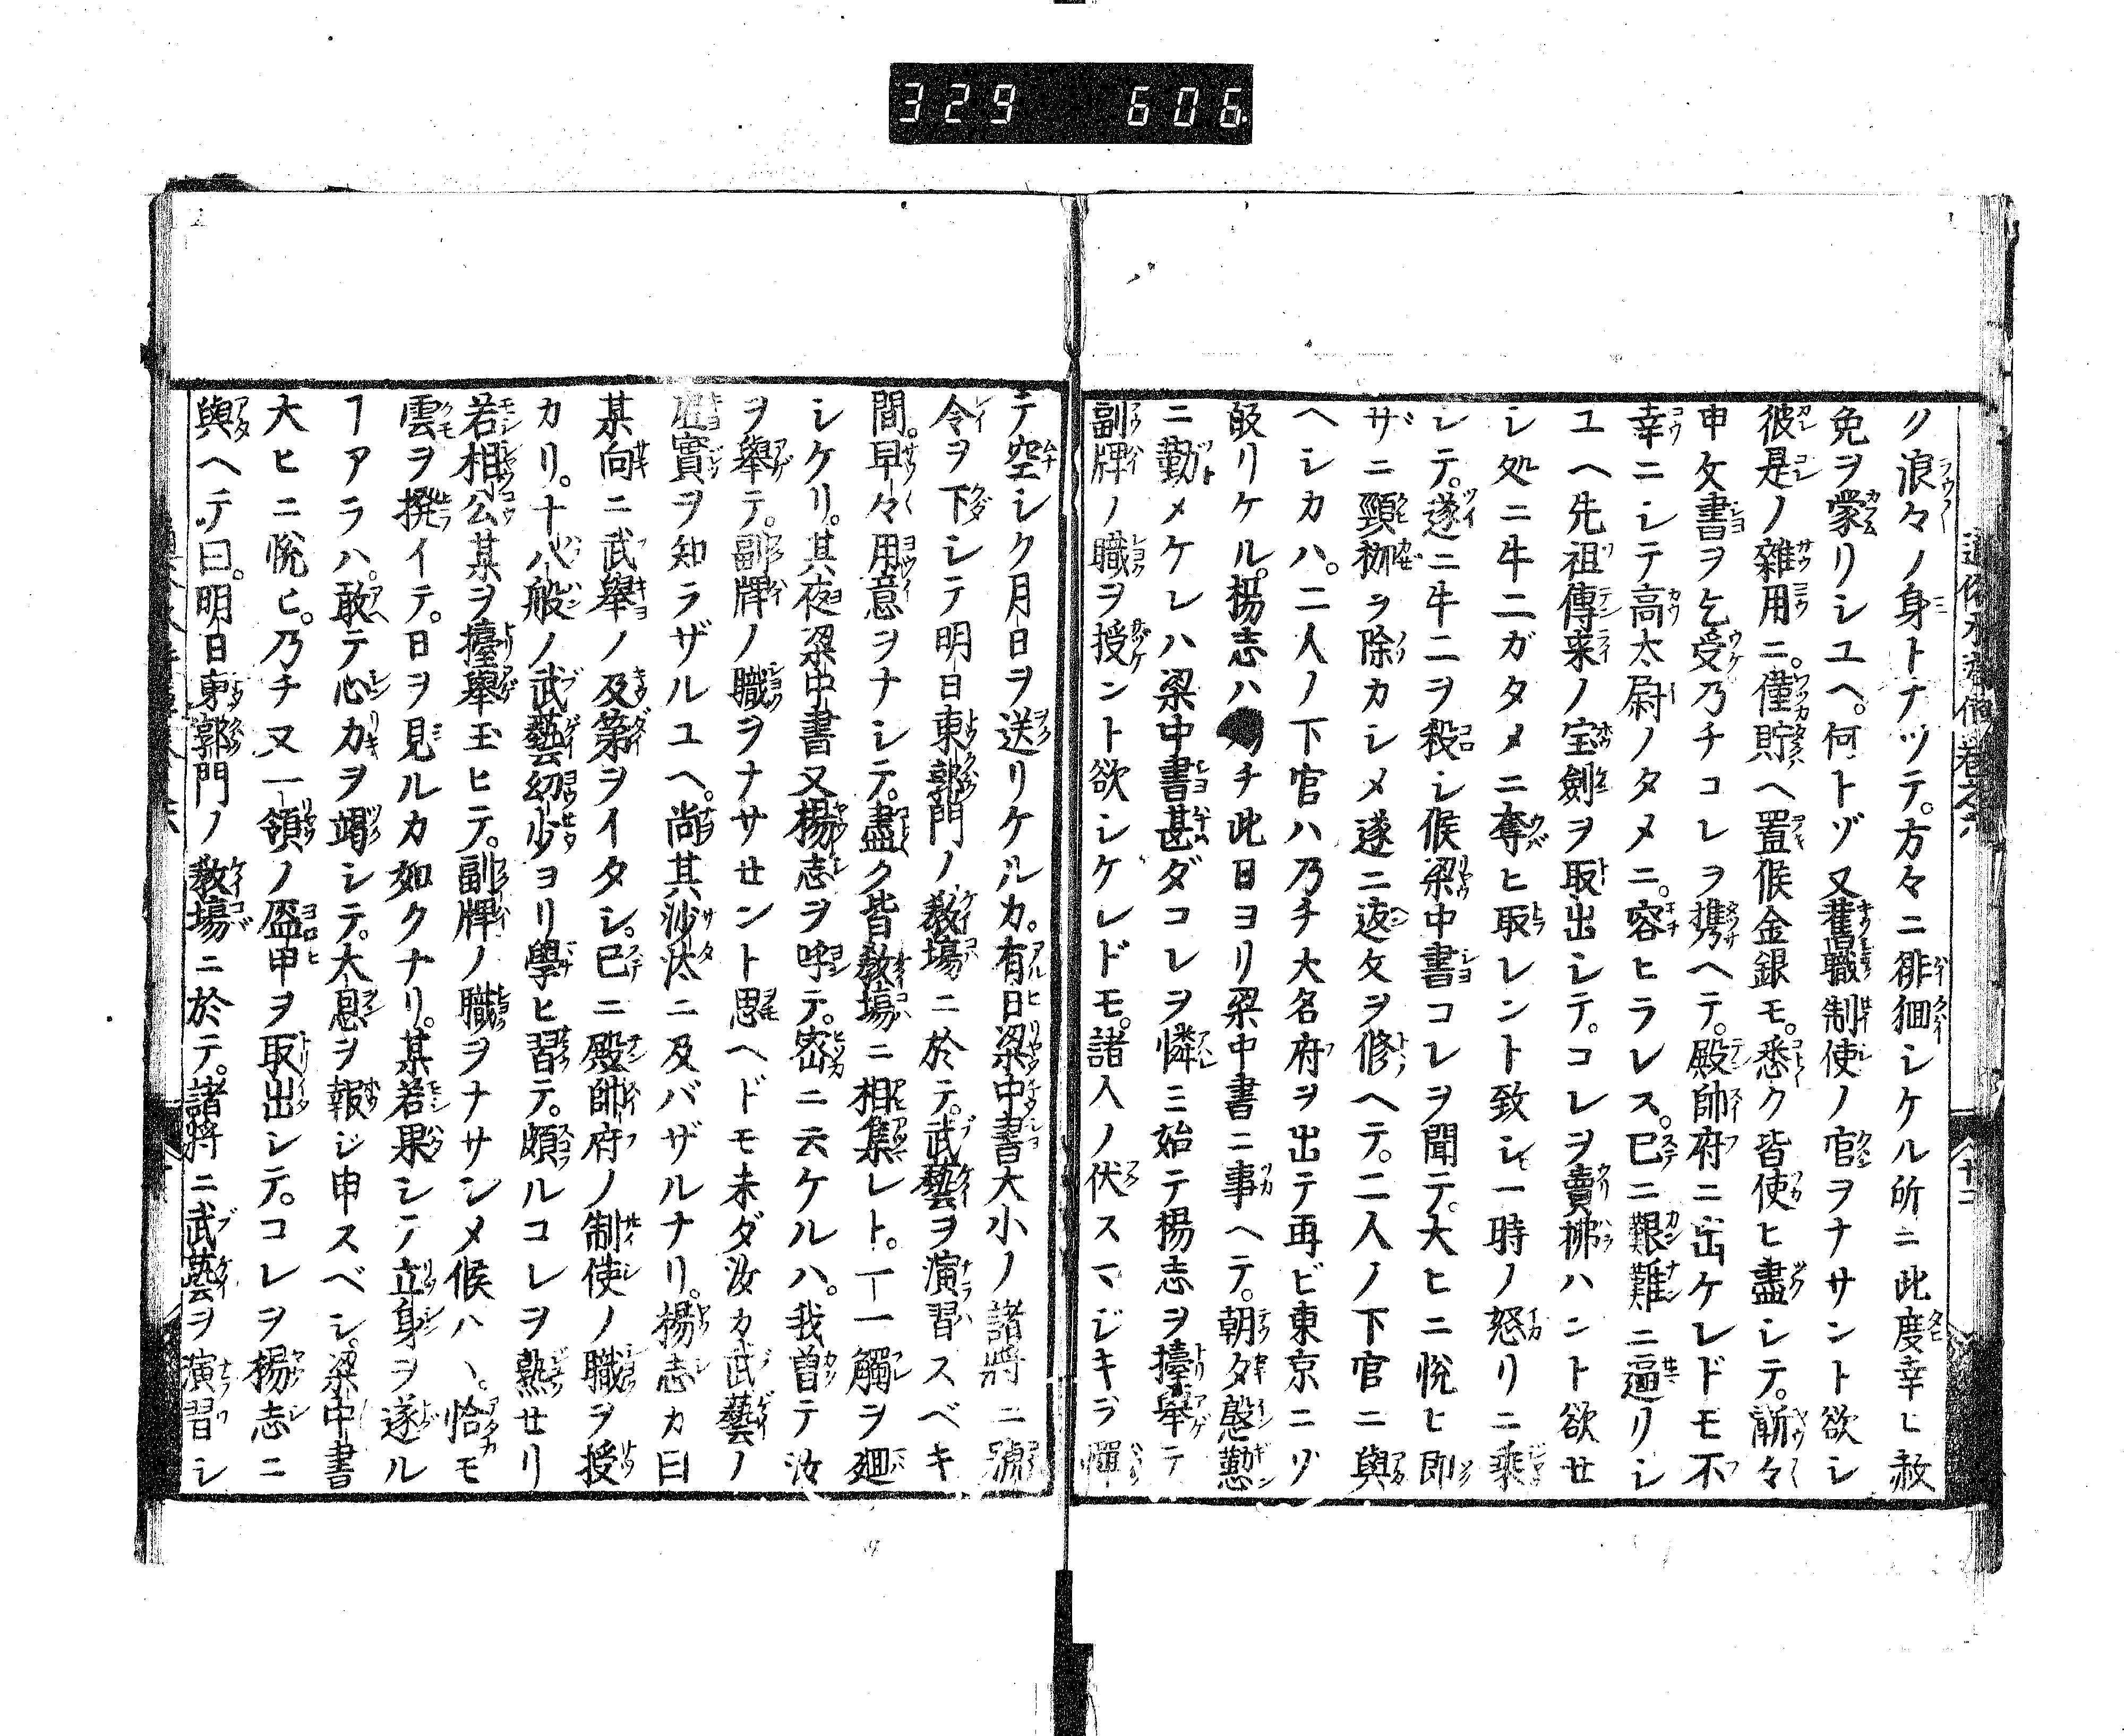 329 606
ノ浪々ノ身トナツテ。方々ニ徘徊シケル所ニ此度幸ヒ赦
免ヲ蒙リシユヘ。何トゾ又舊職制使ノ官ヲナサント欲シ
彼是ノ雜用ニ。僅貯ヘ置候金銀モ。悉ク皆使ヒ盡シテ。漸々
申文書ヲ乞受乃チコレヲ携ヘテ。殿帥府ニ出ケレドモ不
幸ニシテ高太尉ノタメニ。容ヒラレス。已ニ艱難ニ逼リシ
ユヘ先祖傳来ノ宝劍ヲ取出シテ。コレヲ賣拂ハント欲セ
シ処ニ牛二ガタメニ奪ヒ取レント致シ一時ノ怒リニ乘
シテ。遂ニ牛二ヲ殺シ候梁中書コレヲ聞テ。大ヒニ悦ヒ即
サニ頸枷ヲ除カシメ遂ニ返文ヲ修ヘテ。二人ノ下官ニ與
ヘシカハ。二人ノ下官ハ乃チ大名府ヲ出テ再ビ東京ニゾ
皈リケル。楊志ハチ此日ヨリ梁中書ニ事ヘテ。朝夕慇懃
ニ勤メケレハ梁中書甚ダコレヲ憐ミ始テ楊志ヲ擡舉テ
副牌ノ職ヲ授ント欲シケレドモ。諸人ノ伏スマジキヲ憚
テ空シク月日ヲ送リケルカ。有日梁中書大小ノ諸將ニ號
令ヲ下シテ明日東郭門ノ教場ニ於テ。武藝ヲ演習スベキ
間。早々用意ヲナシテ。盡ク皆教場ニ相集レト。一一觸ヲ廻
シケリ。其夜梁中書又楊志ヲ呼テ。密ニ云ケルハ。我曽テ汝
ヲ舉テ。副牌ノ職ヲナサセント思ヘドモ未ダ汝カ武藝ノ
虚實ヲ知ラザルユヘ。尚其沙汰ニ及バザルナリ。楊志カ曰
某向ニ武舉ノ及第ヲイタシ。已ニ殿帥府ノ制使ノ職ヲ授
カリ。十八般ノ武藝幼少ヨリ學ヒ習テ。頗ルコレヲ熟セリ
若相公某ヲ擡舉玉ヒテ。副牌ノ職ヲナサシメ候ハヽ。恰モ
雲ヲ撥イテ。日ヲ見ルカ如クナリ。某若果シテ立身ヲ遂ル
ヿアラハ。敢テ心力ヲ竭シテ。大恩ヲ報シ申スベシ。梁中書
大ヒニ悦ヒ。乃チ又一領ノ盔甲ヲ取出シテ。コレヲ楊志ニ
與ヘテ曰。明日東郭門ノ教場ニ於テ。諸將ニ武藝ヲ演習シ